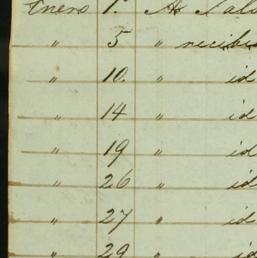 Enero 1º A Sal
" 5 " recibi
" 10 " id
" 14 " id
" 19 " id
" 26 " id
" 27 " id
" 29 " id